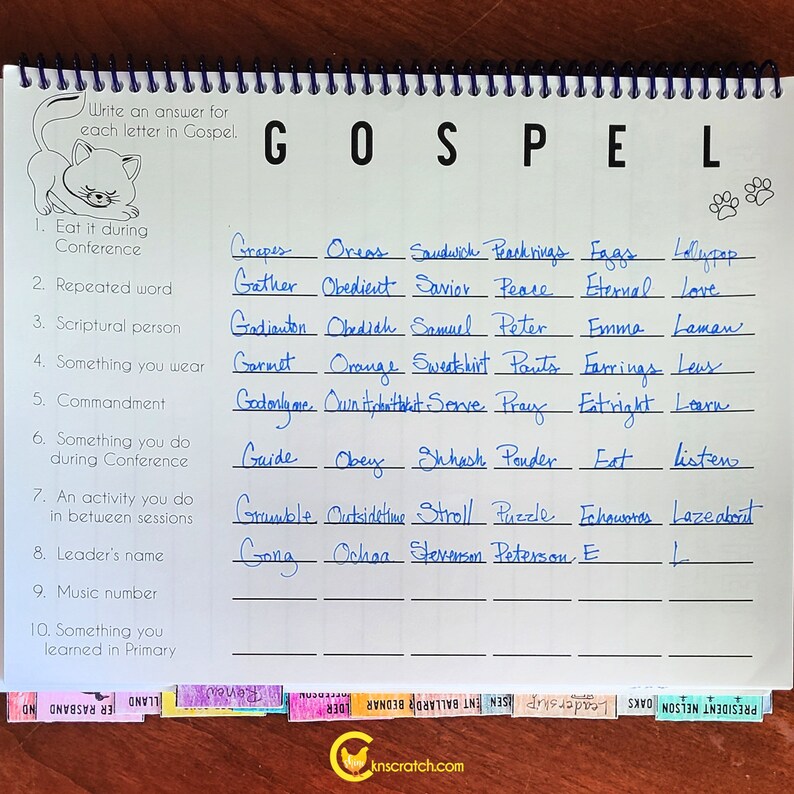 Write an answer for
each letter in Gospel.
G O S P E L
1. Eat it during
Conference Grapes Oreos Sandwich Peach rings Eggs Lollypop
2. Repeated word Gather Obedient Savior Peace Eternal Love
3. Scriptural person Gadianton Obadiah Samuel Peter Emma Laman
4. Something you wear Garmet Orange Sweatshirt Pants Earrings Lens
5. Commandment Godonlyone Serve Pray Eat right Learn
6. Something you do
during Conference Guide Obey Shhush Ponder Eat listen
7. An activity you do
in between sessions Grumble Outsidetime Stroll Puzzle Echowords Laze about
8. Leader's name Gong Ochoa Stevenson Peterson E L
9. Music number
10. Something you
learned in Primary
ER RASBAND LLAND Renew ER BEDNAR ENT BALLARD Leadership OAKS PRESIDENT NELSON
shine
cknscratch.com